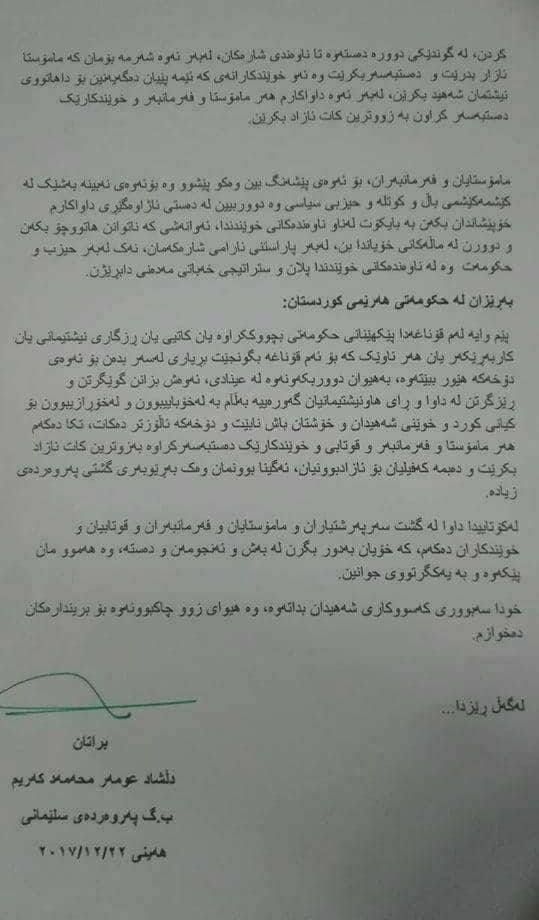 کردن، لە گوندێکی دوورە دەستەوە تا ناوەندی شارەکان، لەبەر ئەوە شەرمە بۆمان کە مامۆستا
ئازار بدرێت و دەستبەسەربکرێت وە ئەو خوێندکارانەی کە ئێمە پێیان دەگەیەنین بۆ داهاتووی
نیشتمان شەهید بکرێن، لەبەر ئەوە داواکارم هەر مامۆستا و فەرمانبەر و خوێندکارێک
دەستبەسەر کراون بە زووترین کات ئازاد بکرێن.
مامۆستایان و فەرمانبەران، بۆ ئەوەی پێشەنگ بین وەکو پێشوو وە بۆئەوەی نەبینە بەشێک لە
کێشمەکێشمی باڵ و کوتلە و حیزبی سیاسی وە دووربین لە دەستی ئاژاوەگێڕی داواکارم
خۆپیشاندان بکەن بە بایکوت لەناو ناوەندەکانی خوێندندا، ئەوانەشی کە ناتوانن هاتووچۆ بکەن
و دوورن لە ماڵەکانی خۆیاندا بن، لەبەر پاراستنی ئارامی شارەکەمان، نەک لەبەر حیزب و
حکومەت وە لە ناوەندەکانی خوێندندا پلان و ستراتیجی خەباتی مەدەنی دابڕێژن.
بەڕێزان لە حکومەتی هەرێمی کوردستان:
پێم وایە لەم قۆناغەدا پێکهێنانی حکومەتی بچووککراوە یان کاتیی یان ڕزگاری نیشتیمانی یان
کاربەڕێکەر یان هەر ناوێک کە بۆ ئەم قۆناغە بگونجێت بڕیاری لەسەر بدەن بۆ ئەوەی
دۆخەکە هێور ببێتەوە، بەهیوان دووربکەونەوە لە عینادی، ئەوەش بزانن گوێگرتن و
ڕێزگرتن لە داوا و ڕای هاونیشتیمانیان گەورەییە بەڵام بە لەخۆباییبوون و لەخۆڕازیبوون بۆ
کیانی کورد و خوێنی شەهیدان و خۆشتان باش نابێت و دۆخەکە ئاڵۆزتر دەکات، تکا دەکەم
هەر مامۆستا و فەرمانبەر و قوتابی و خوێندکارێک دەستبەسەرکراوە بەزوترین کات ئازاد
بکرێت و دەبمە کەفیلیان بۆ ئازادبوونیان، ئەگینا بوونمان وەک بەڕێوبەری گشتی پەروەردەی
زیادە.
لەکۆتاییدا داوا لە گشت سەرپەرشتیاران و مامۆستایان و فەرمانبەران و قوتابیان و
خوێندکاران دەکەم، کە خۆیان بەدور بگرن لە بەش و ئەنجومەن و دەستە، وە هەموو مان
پێکەوە و بە یەکگرتووی جوانین.
خودا سەبووری کەسووکاری شەهیدان بداتەوە، وە هیوای زوو چاکبوونەوە بۆ بریندارەکان
دەخوازم.
لەگەڵ ڕێزدا...
براتان
دڵشاد عومەر محەمەد کەریم
ب.گ پەروەردەی سلێمانی
هەینی ٢٠١٧/١٢/٢٢